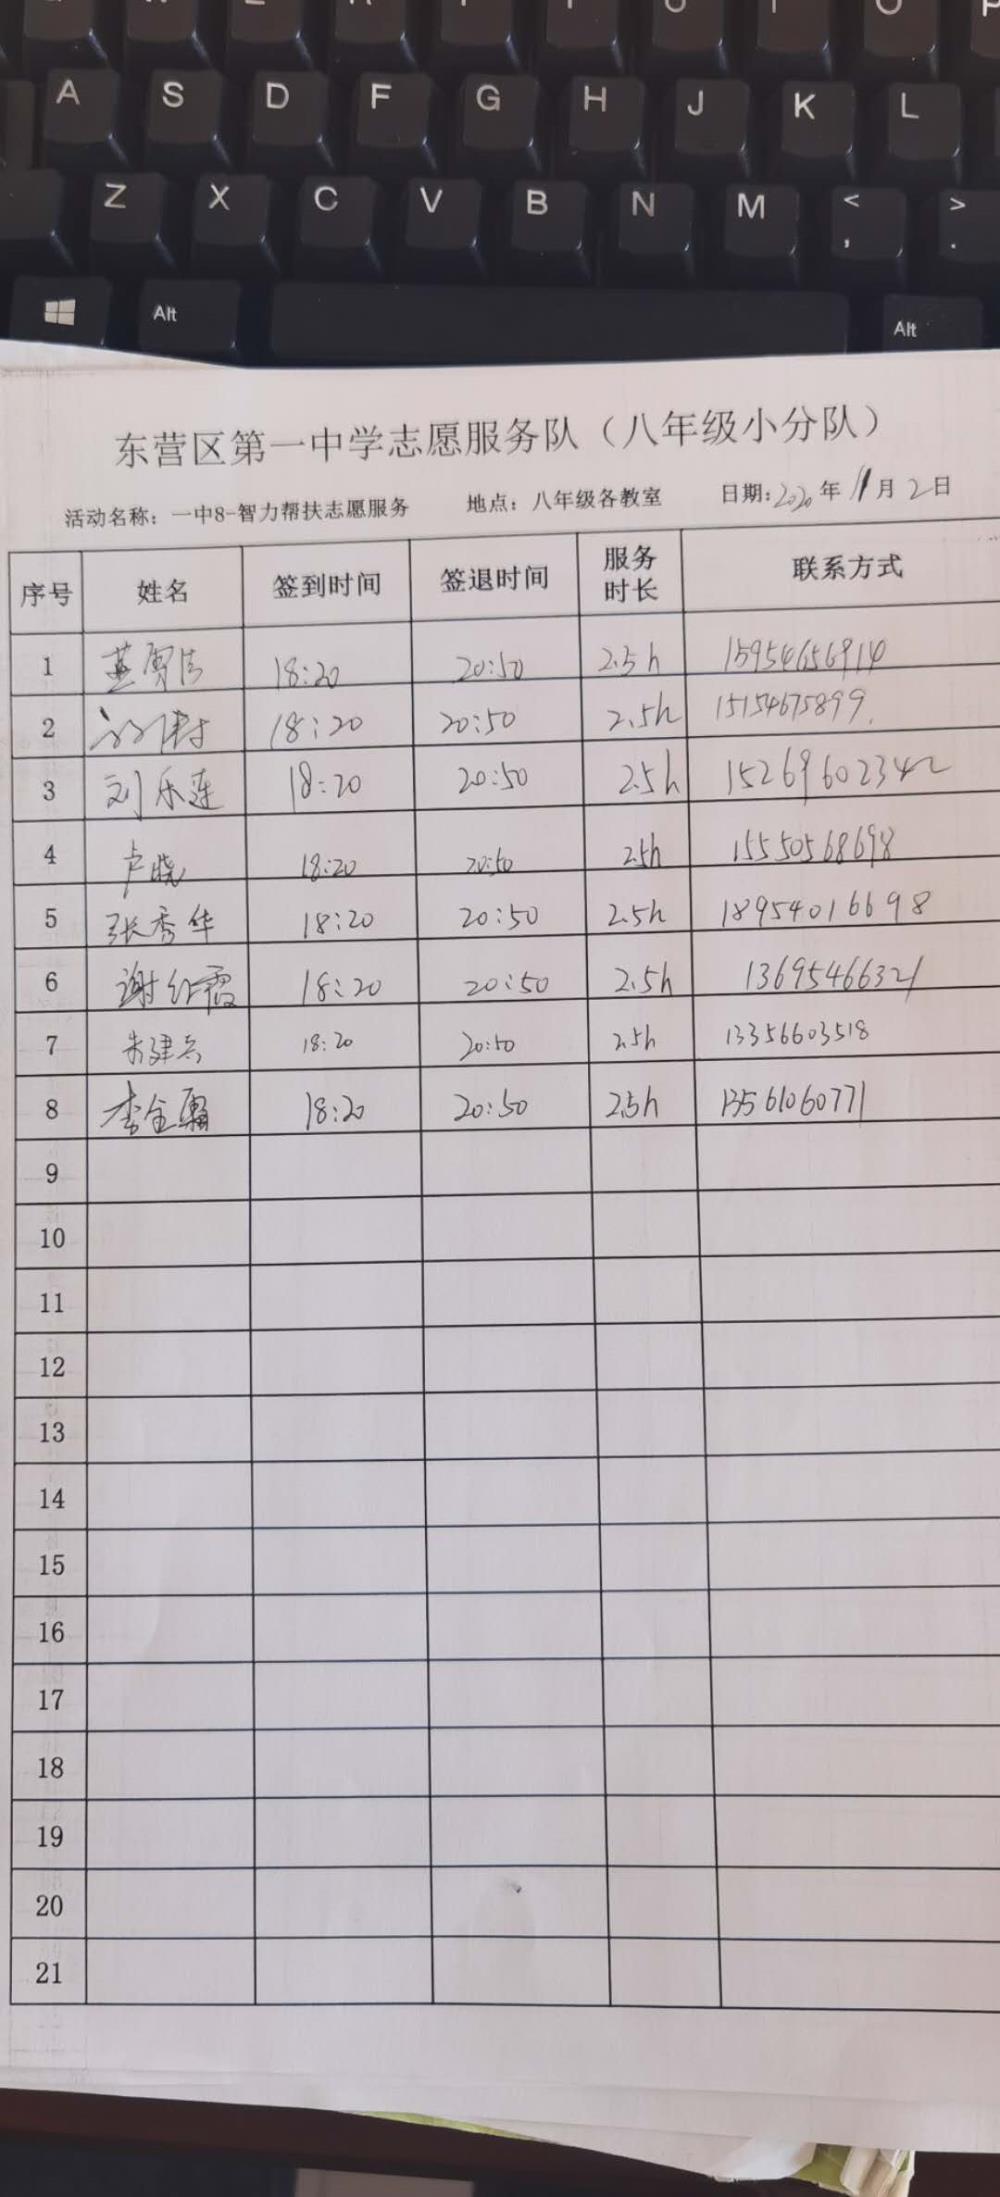 A S D F G H J K L
Z X C V B N M < , > .
Alt Alt
东营区第一中学志愿服务队（八年级小分队）
活动名称：一中8-智力帮扶志愿服务 地点：八年级各教室 日期：2020年11月2日
序号 姓名 签到时间 签退时间 服务时长 联系方式
1 18:20 20:50 2.5h 15954656914
2 18:20 20:50 2.5h 15154675899
3 刘乐莲 18:20 20:50 2.5h 15269602342
4 卢晓 18:20 20:50 2.5h 15550568698
5 张秀华 18:20 20:50 2.5h 18954016698
6 谢红霞 18:20 20:50 2.5h 13695466321
7 朱建兵 18:20 20:50 2.5h 13356603518
8 李金霜 18:20 20:50 2.5h 13561060771
9
10
11
12
13
14
15
16
17
18
19
20
21